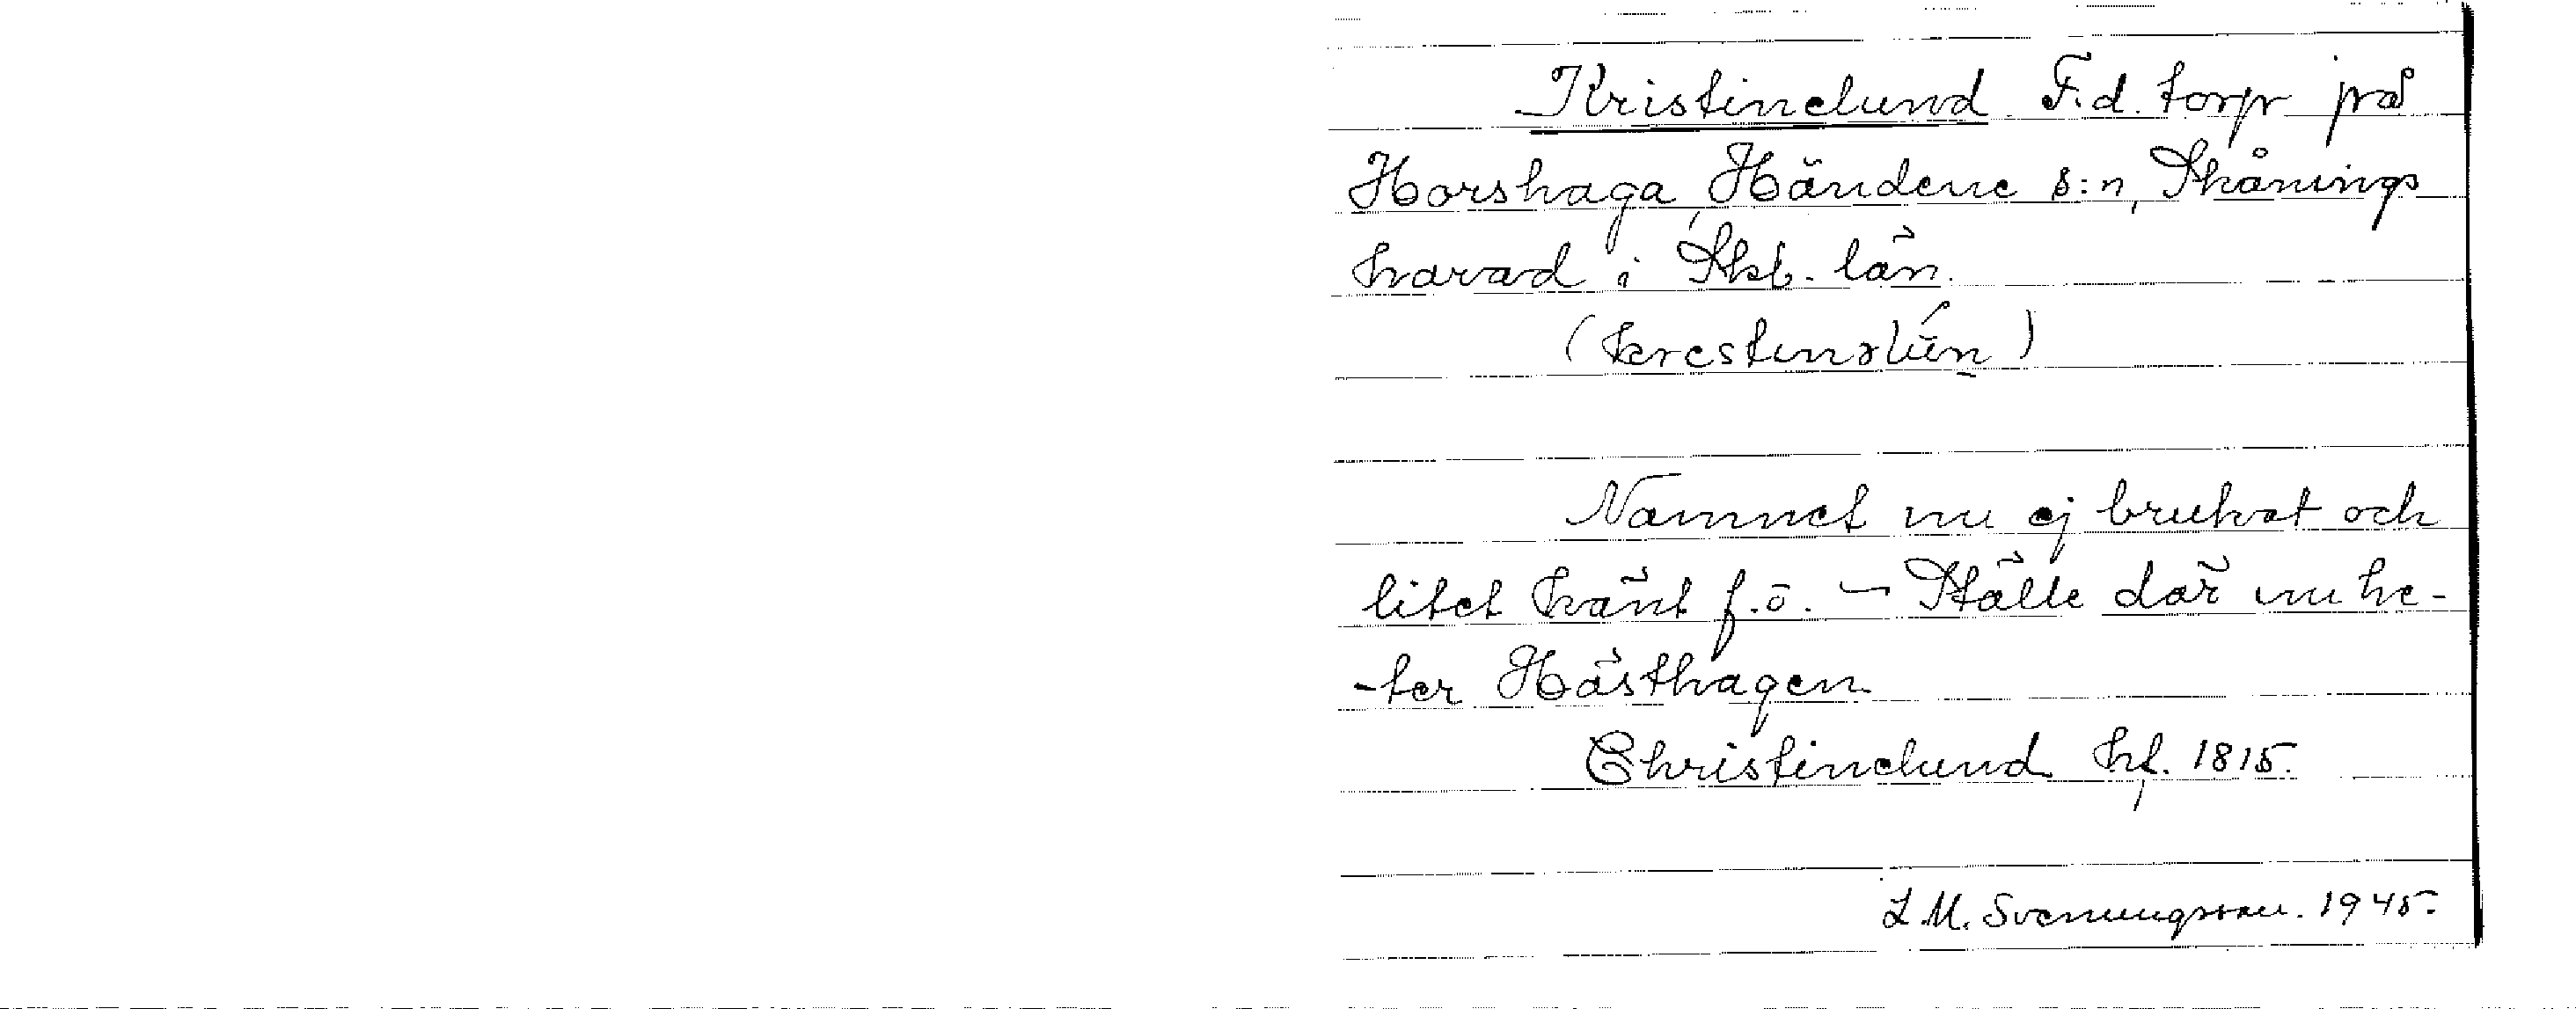 Kristinelund F.d. torp på
Horshaga, Händene s:n, Skånings
harad i Skb. län.
(krestinəlún)
Namnet nu ej brukat och
litet känt f.ö. – Ställe där nu he-
-ter Hästhagen
Christinelund hf. 1815.
L.M. Svenungsson. 1945.